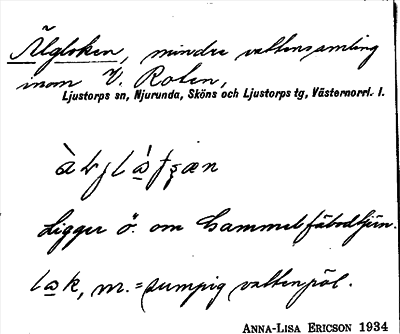 Älgloken, mindre vattensamling
inom V. Roten,
Ljustorps sn, Njurunda, Sköns och Ljustorps tg, Västernorrl. l.
Ligger ö. om Gammelfäbodtjärn.
lɷk, m. = sumpig vattenpöl.
ANNA-LISA ERICSON 1934